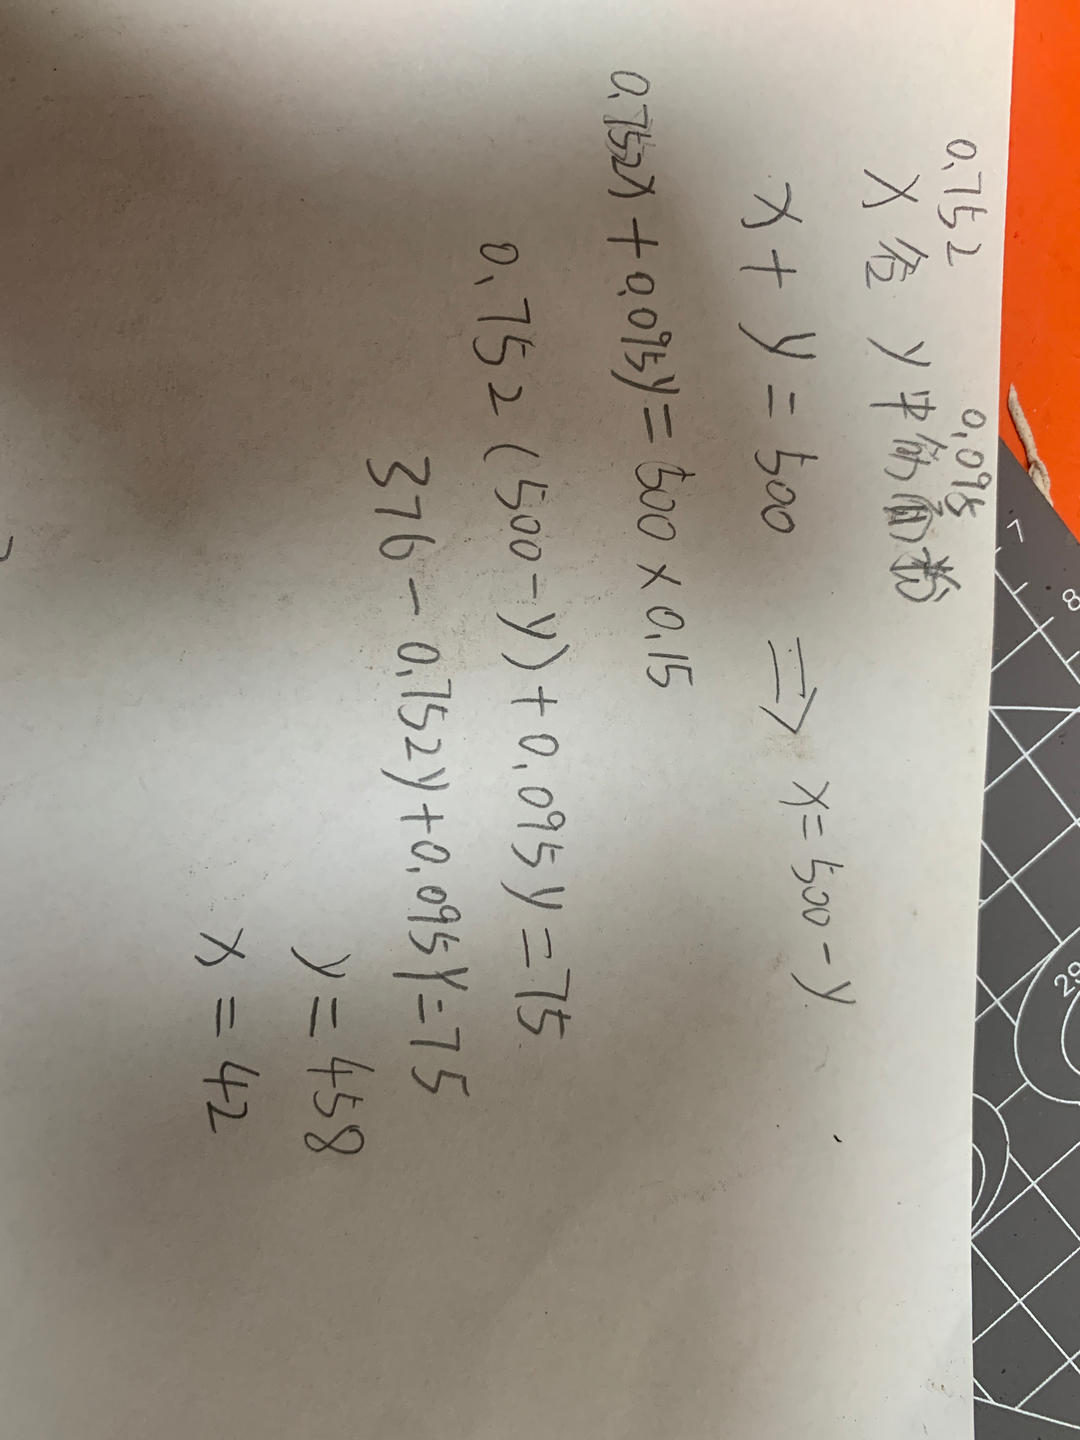 0.752
0.095
x 谷 y 中筋面粉
x + y = 500 ⇒ x = 500 - y
0.752x + 0.095y = 500 × 0.15
0.752 (500 - y) + 0.095y = 75
376 - 0.752y + 0.095y = 75
y = 458
x = 42
7
8
29